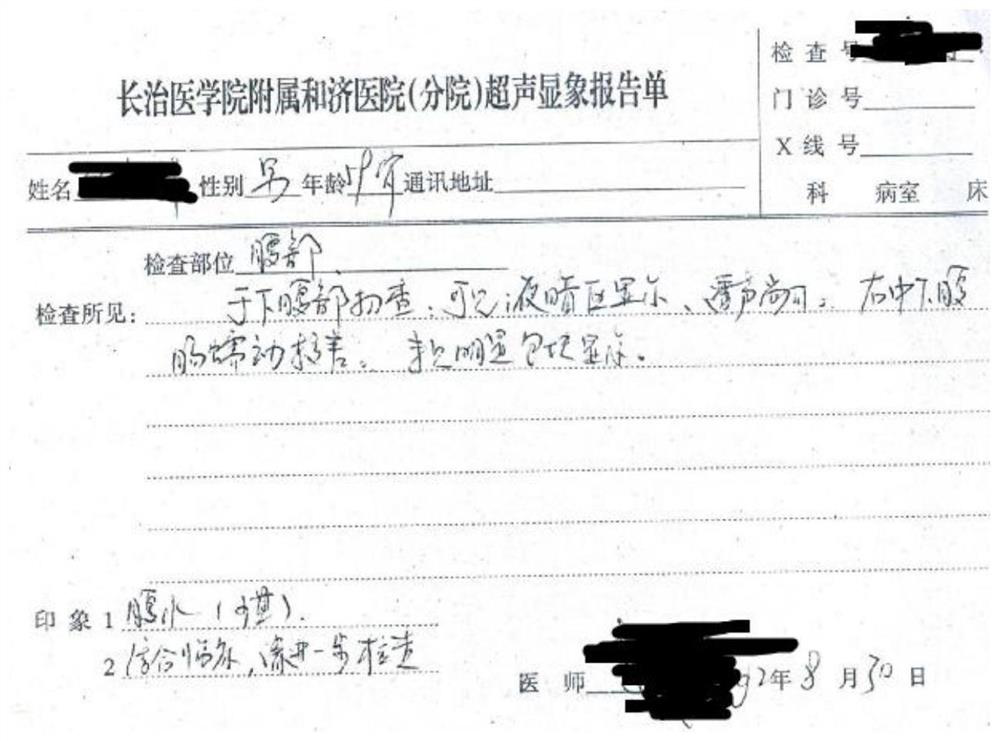 检查号
长治医学院附属和济医院(分院)超声显象报告单
门诊号
X线号
姓名 性别 男 年龄 59岁 通讯地址
科 病室 床
检查部位 腹部
检查所见: 于下腹部扫查:可见液暗区显示、透声尚可。右中下腹
肠蠕动 。未见明显包块显示。
印象 1 腹水(少量).
2 结合临床,请进一步检查
医师 92年8月30日